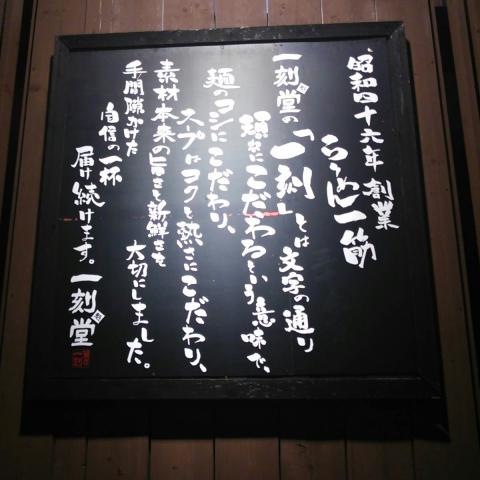 昭和四十六年創業
らーめん一筋
一刻堂の「一刻」とは文字の通り
頑なにこだわるという意味で、
麺のコシにこだわり、
スープはコクと熱さにこだわり、
素材本来の旨さと新鮮さを
大切にしました。
手間隙かけた
自信の一杯
届け続けます。
一刻堂